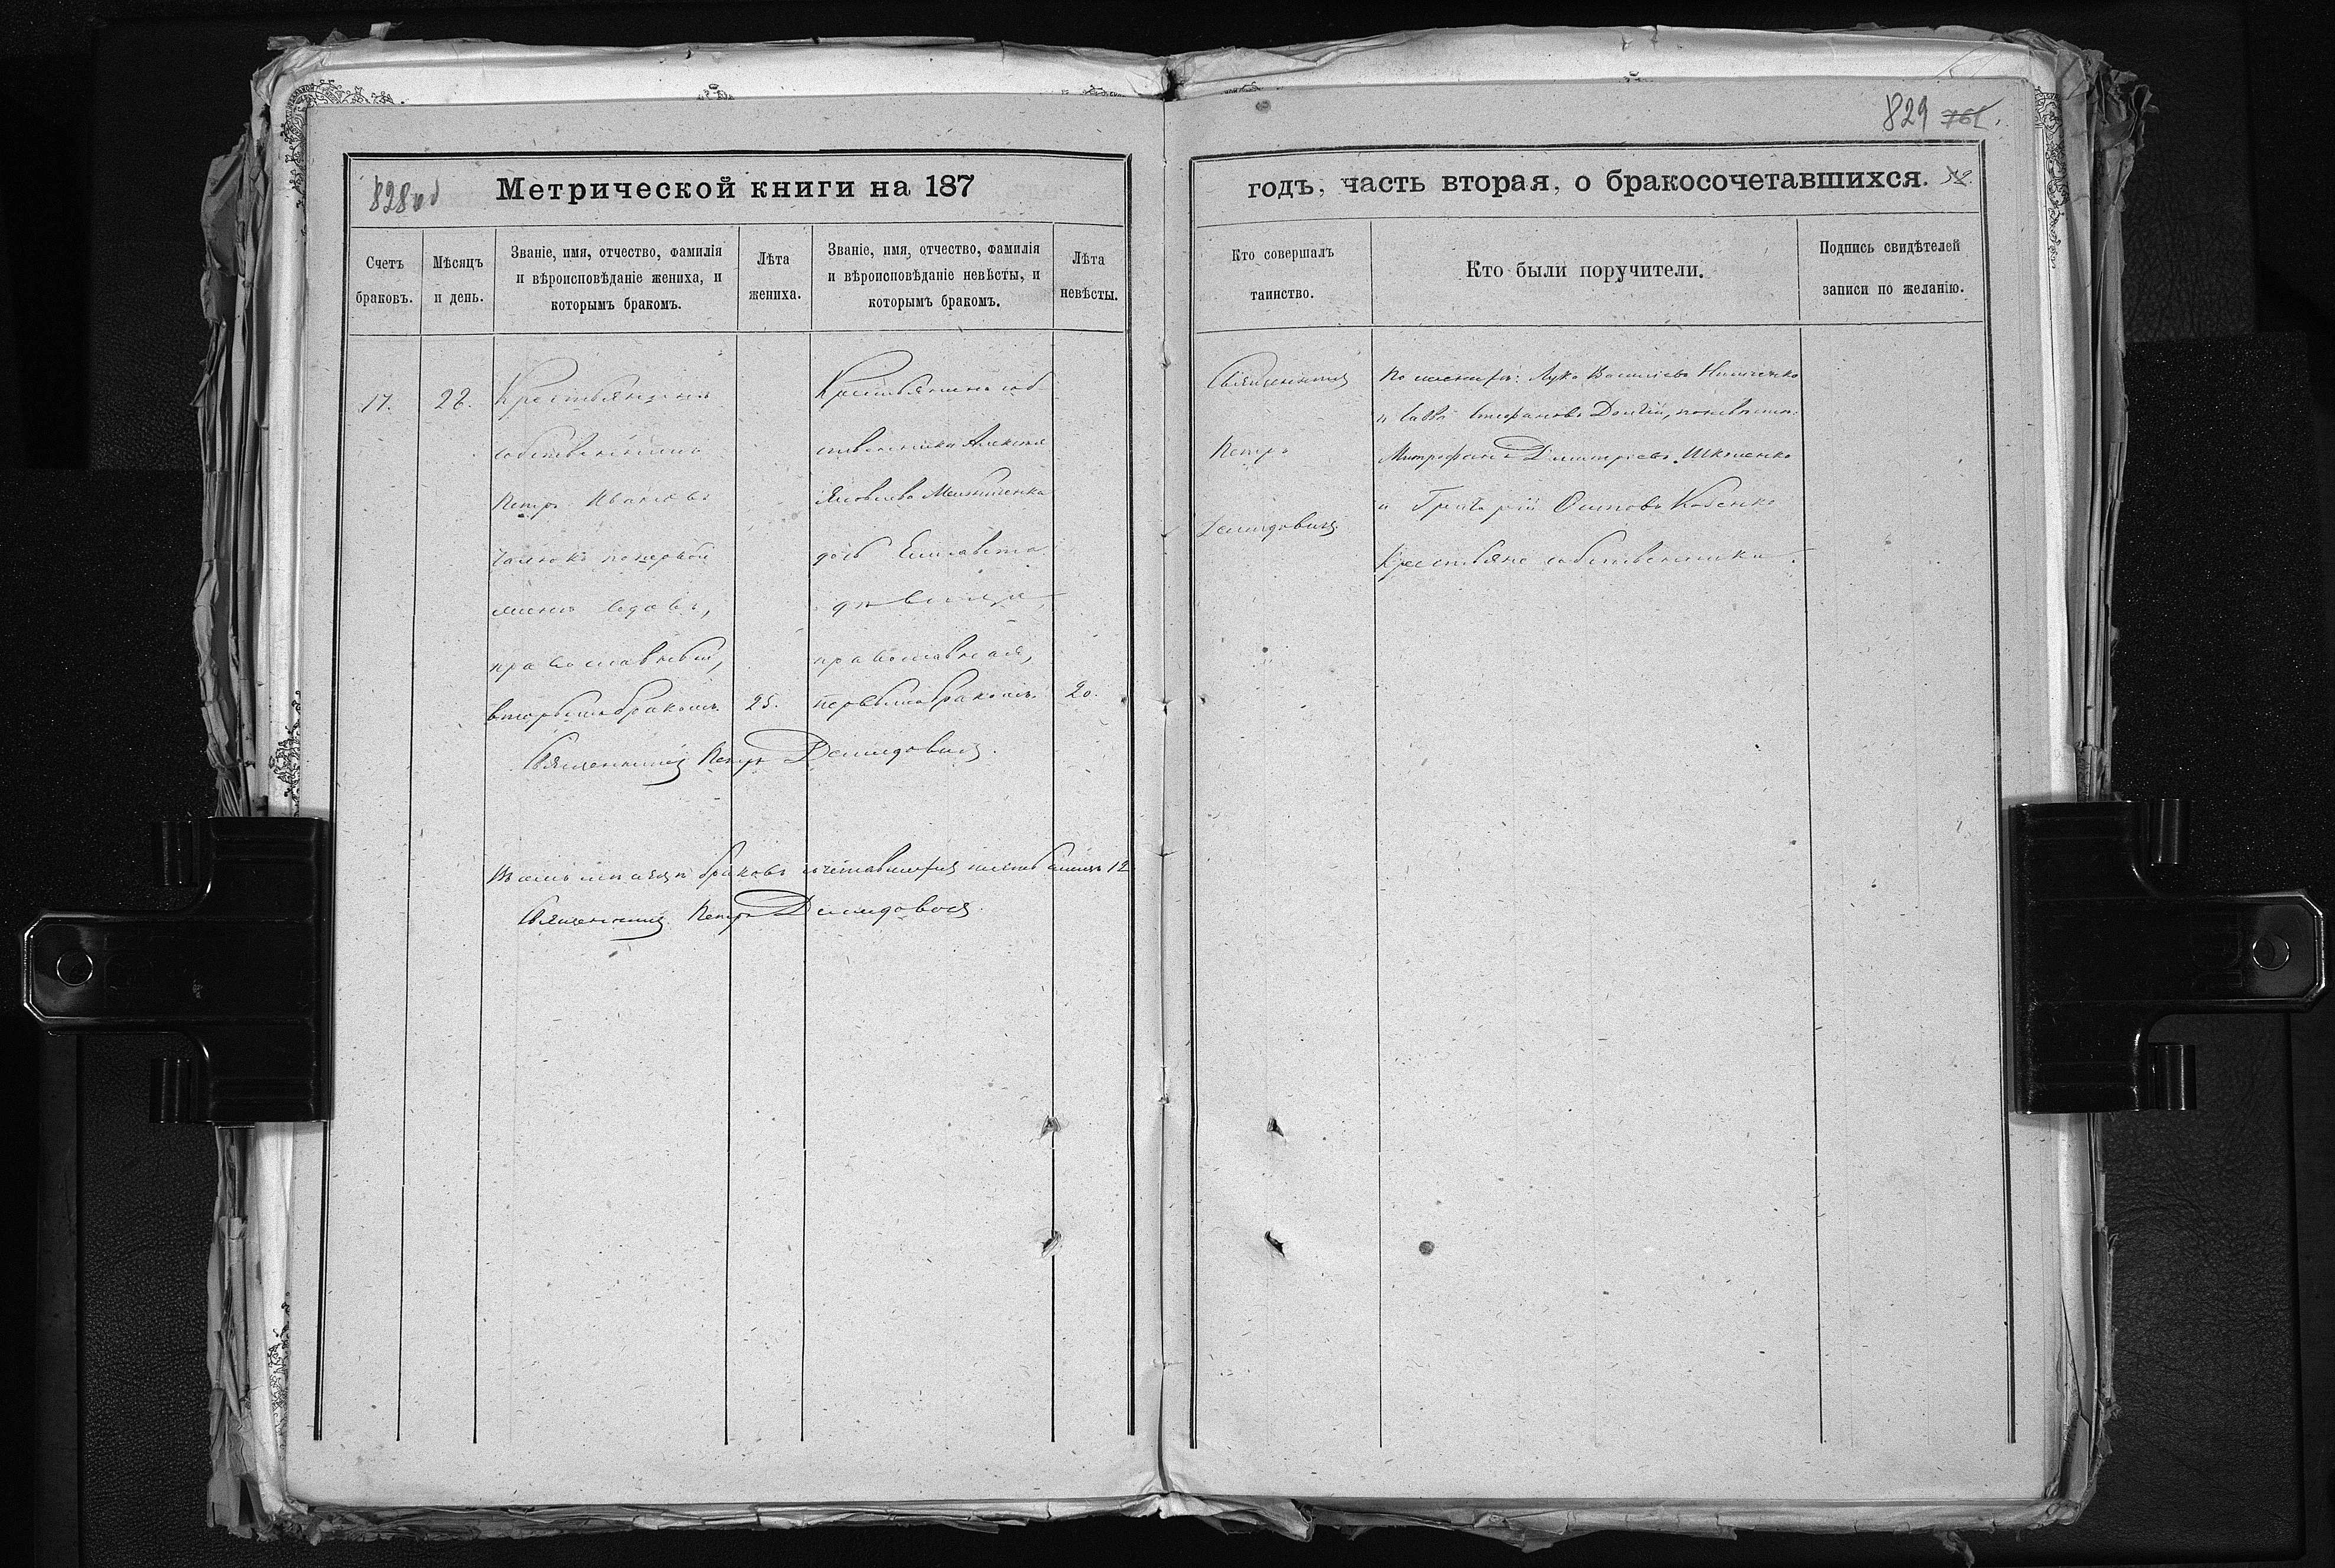 828 об
Метрической книги на 187
Счетъ браковъ.
Мѣсяцъ и день.
Званіе, имя, отчество, фамилія
и вѣроисповѣданіе жениха, и
которымъ бракомъ.
Лѣта
жениха.
Званіе, имя, отчество, фамилія
и вѣроисповѣданіе невѣсты, и
которымъ бракомъ.
Лѣта
невѣсты.
17.
28.
Крестьянинъ
собственникъ
Петръ Ивановъ
по первой
женѣ вдовъ,
православный,
вторымъ бракомъ.
25.
Крестьянина соб
ственника Алексѣя
Яковлева Мельниченка
дочь Елисавета
дѣвица,
православная,
первымъ бракомъ.
20.
Священникъ Петръ Демидовичъ.
браковъ 12
Священникъ Петръ Демидовичъ.
829 761.
годъ, часть вторая, о бракосочетавшихся.
Кто совершалъ
таинство.
Кто были поручители.
Подпись свидѣтелей
записи по желанію.
Священникъ
Петръ
Демидовичъ.
По женихѣ: Лука Василіевъ
и Савва Стефановъ Долгій, по невѣстѣ:
Митрофанъ Димитріевъ
и Григорій Осиповъ
Крестьяне собственники.